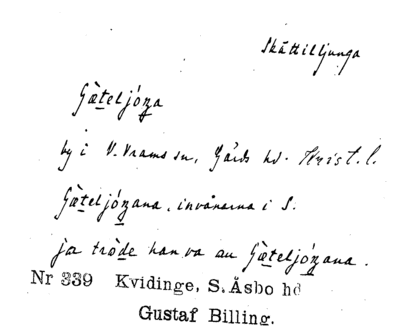 Skättilljunga
Gæ̀teljóꞑa
by i V. Vrams sn, Gärds hd. Krist. l.
Gæ̀teljóꞑana, invånarna i S.
ja tròde han va au Gæ̀teljóꞑana.
Nr 339 Kvidinge, S. Åsbo hd
Gustaf Billing.